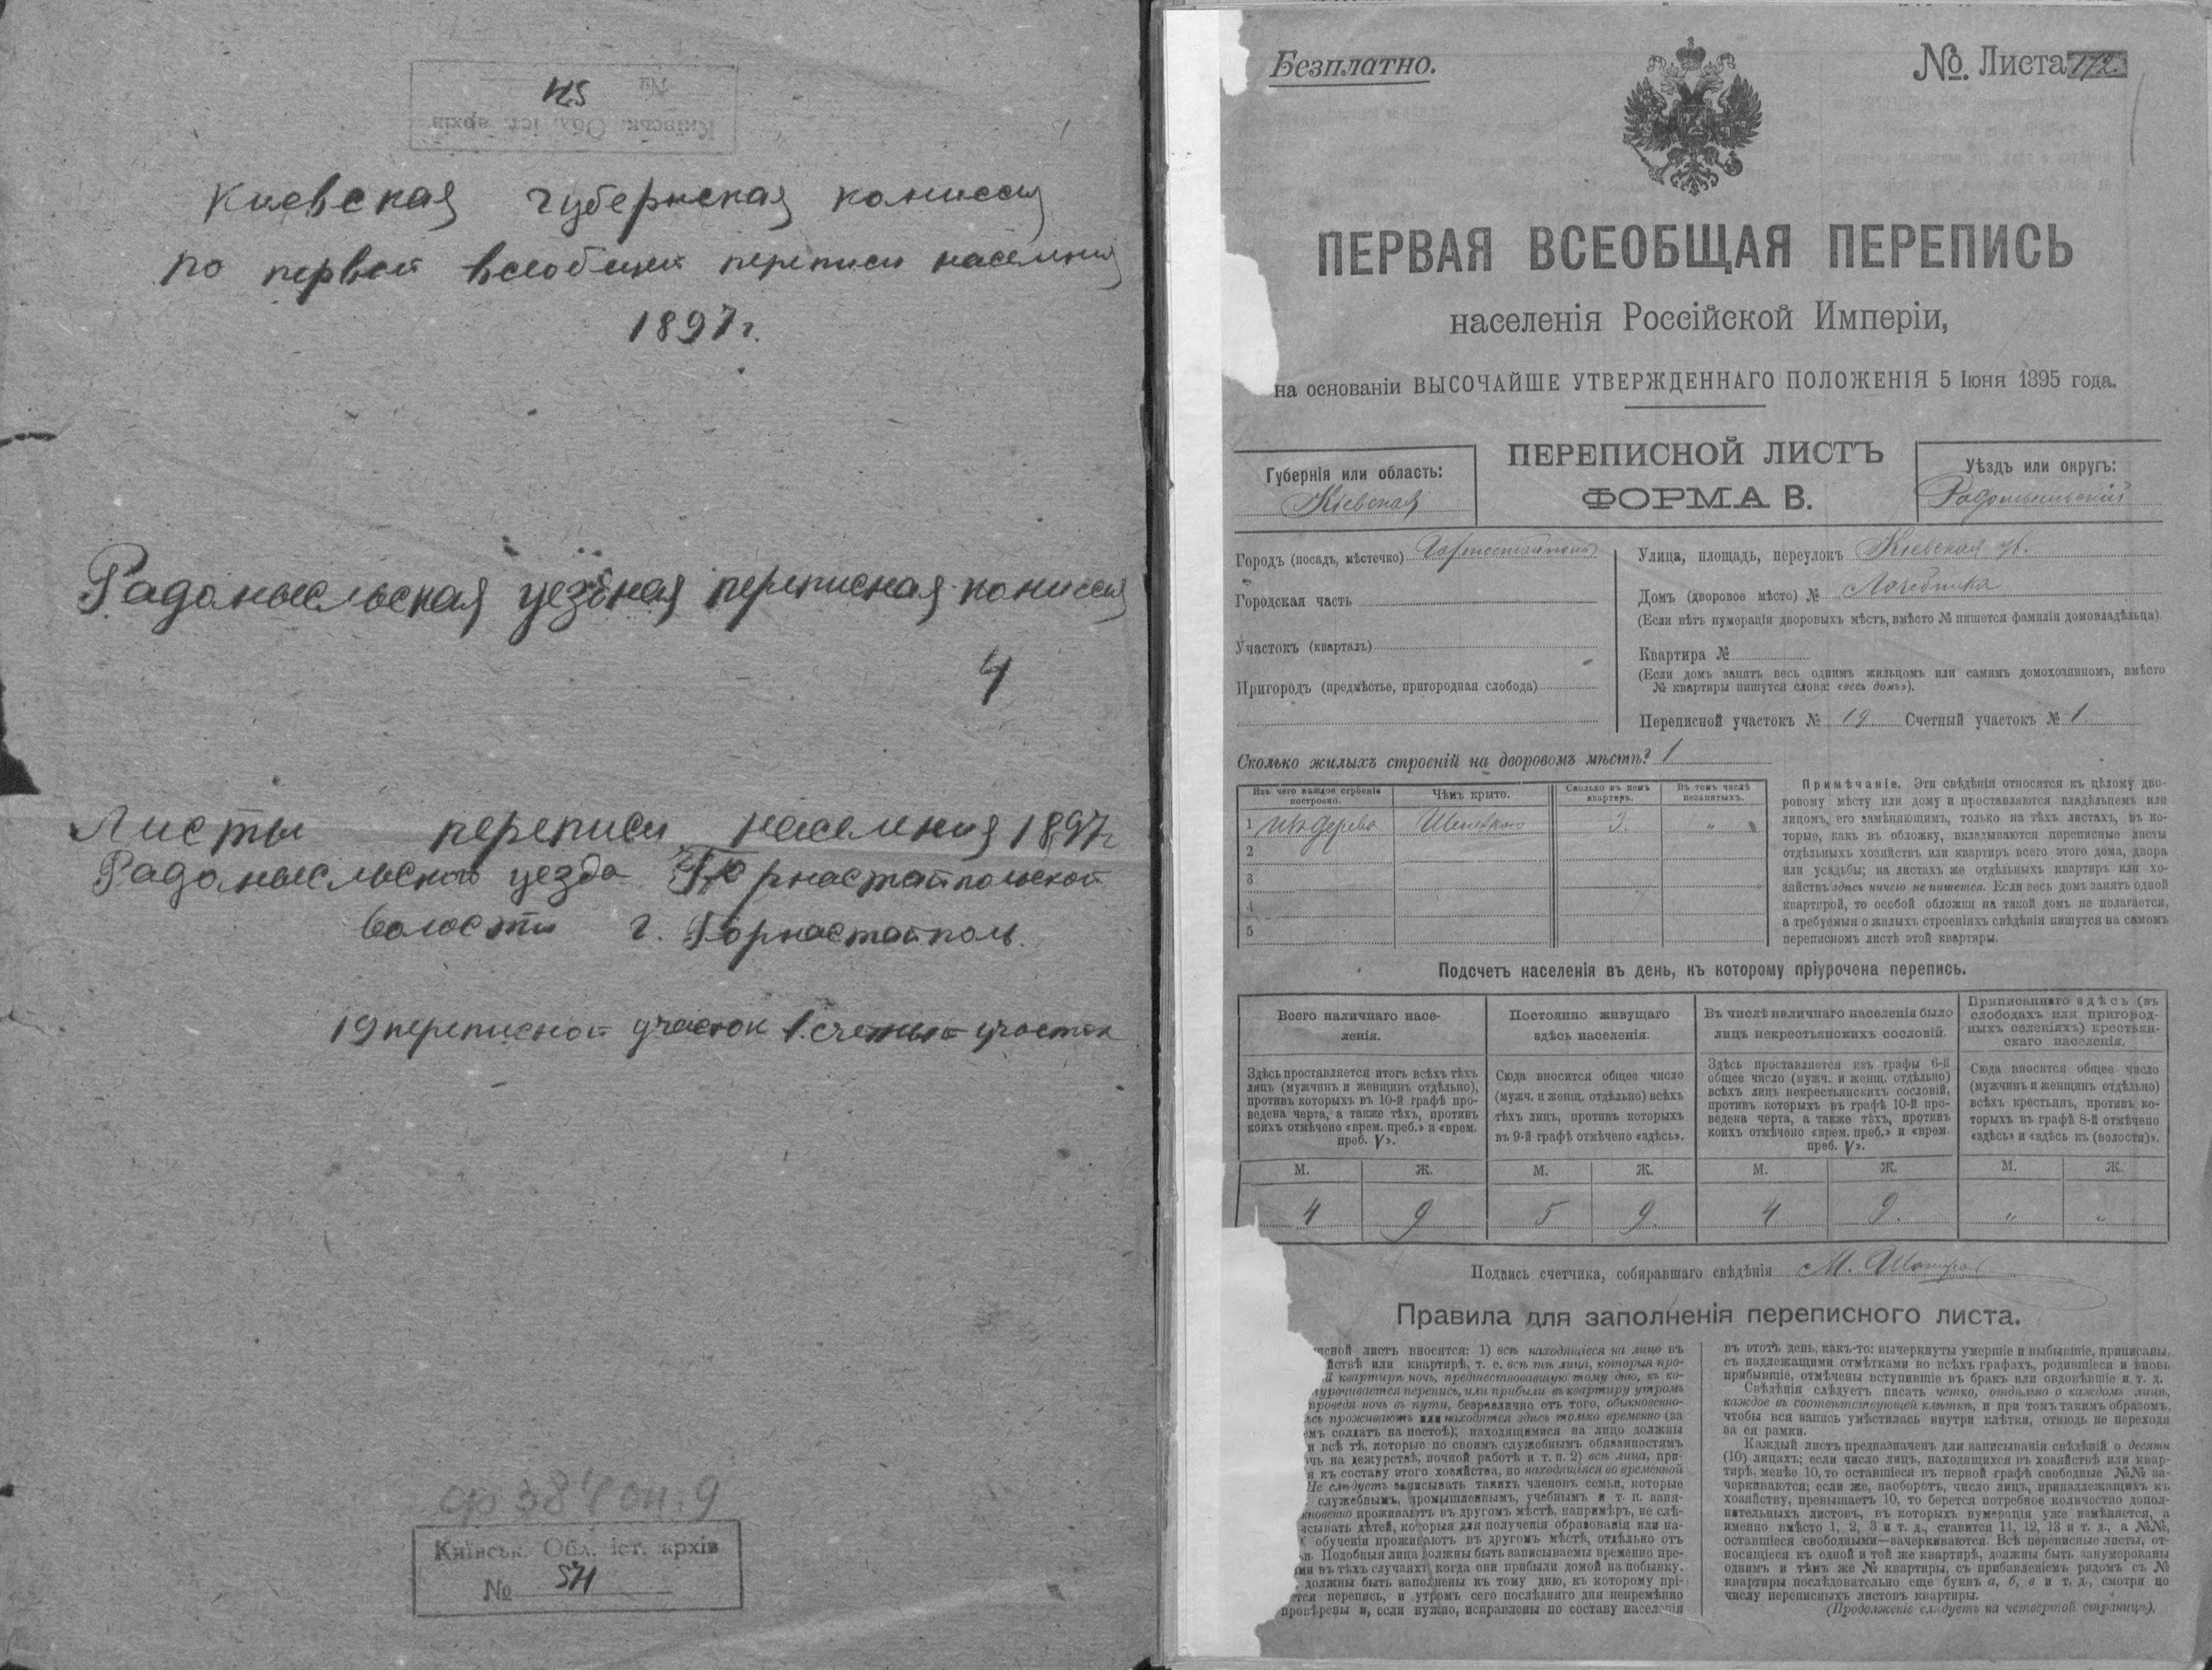 Киевская губернская комиссия
по первой всеобщей переписи населения
1897 г.
Радомысльская уездная переписная комиссия
4
Листы переписи населения 1897 г
Радомысльского уезда Горностайпольской
волости г. Горностайполь.
19 переписной участок 1. счетный участок
ф 384 оп. 9
Київськ. Обл. іст. архів
№ 571
Безплатно.
№ Листа 172.
ПЕРВАЯ ВСЕОБЩАЯ ПЕРЕПИСЬ
населенія Россійской Имперіи,
на основаніи ВЫСОЧАЙШЕ УТВЕРЖДЕННАГО ПОЛОЖЕНІЯ 5 Іюня 1895 года.
ПЕРЕПИСНОЙ ЛИСТЪ
ФОРМА В.
Губернія или область:
Кіевская
Уѣздъ или округъ:
Радомысльскій
Городъ (посадъ, мѣстечко) Горностайполь
Городская часть
Участокъ (кварталъ)
Пригородъ (предмѣстье, пригородная слобода)
Улица, площадь, переулокъ Кіевская ул.
Домъ (дворовое мѣсто) №
(Если нѣтъ нумераціи дворовыхъ мѣстъ, вмѣсто № пишется фамилія домовладѣльца).
Квартира №
(Если домъ занятъ весь однимъ жильцомъ или самимъ домохозяиномъ, вмѣсто
№ квартиры пишутся слова: «весь домъ»).
Переписной участокъ № 19 Счетный участокъ № 1.
Сколько жилыхъ строеній на дворовомъ мѣстѣ? 1
Изъ чего каждое строеніе
построено.
Чѣмъ крыто.
Сколько въ немъ
квартиръ.
Въ томъ числѣ
незанятыхъ.
1 изъ дерева 3. „
2
3
4
5
Примѣчаніе. Эти свѣдѣнія относятся къ цѣлому дво-
ровому мѣсту или дому и проставляются владѣльцемъ или
лицомъ, его замѣняющимъ, только на тѣхъ листахъ, въ ко-
торые, какъ въ обложку, вкладываются переписные листы
отдѣльныхъ хозяйствъ или квартиръ всего этого дома, двора
или усадьбы; на листахъ же отдѣльныхъ квартиръ или хо-
зяйствъ здѣсь ничего не пишется. Если весь домъ занятъ одной
квартирой, то особой обложки на такой домъ не полагается,
а требуемыя о жилыхъ строеніяхъ свѣдѣнія пишутся на самомъ
переписномъ листѣ этой квартиры.
Подсчетъ населенія въ день, къ которому пріурочена перепись.
Всего наличнаго насе-
ленія.
Постоянно живущаго
здѣсь населенія.
Въ числѣ наличнаго населенія было
лицъ некрестьянскихъ сословій.
Приписаннаго здѣсь (въ
слободахъ или пригород-
ныхъ селеніяхъ) крестьян-
скаго населенія.
Здѣсь проставляется итогъ всѣхъ тѣхъ
лицъ (мужчинъ и женщинъ отдѣльно),
противъ которыхъ въ 10-й графѣ про-
ведена черта, а также тѣхъ, противъ
коихъ отмѣчено «врем. преб.» и «врем.
преб. V».
Сюда вносится общее число
(мужч. и женщ. отдѣльно) всѣхъ
тѣхъ лицъ, противъ которыхъ
въ 9-й графѣ отмѣчено «здѣсь».
Здѣсь проставляется изъ графы 6-й
общее число (мужч. и женщ. отдѣльно)
всѣхъ лицъ некрестьянскихъ сословій,
противъ которыхъ въ графѣ 10-й про-
ведена черта, а также тѣхъ, противъ
коихъ отмѣчено «врем. преб.» и «врем
преб. V».
Сюда вносится общее число
(мужчинъ и женщинъ отдѣльно)
всѣхъ крестьянъ, противъ ко-
торыхъ въ графѣ 8-й отмѣчено
«здѣсь» и «здѣсь къ (волости)».
М. Ж. М. Ж. М. Ж. М. Ж.
4 9 5 9. 4 9. „ „
Подпись счетчика, собиравшаго свѣдѣнія М.
Правила для заполненія переписного листа.
листъ вносятся: 1) всѣ находящіеся на лицо въ
или квартирѣ, т. е. всѣ тѣ лица, которыя про-
квартирѣ ночь, предшествовавшую тому дню, къ ко-
перепись, или прибыли въ квартиру утромъ
проведя ночь въ пути, безразлично отъ того, обыкновенно-
проживаютъ или находятся здѣсь только временно (за
солдатъ на постоѣ); находящимися на лицо должны
и всѣ тѣ, которые по своимъ служебнымъ обязанностямъ
на дежурствѣ, ночной работѣ и т. п. 2) всѣ лица, при-
къ составу этого хозяйства, но находящіяся во временной
Не слѣдуетъ записывать такихъ членовъ семьи, которые
служебнымъ, промышленнымъ, учебнымъ и т. п. заня-
проживаютъ въ другомъ мѣстѣ, напримѣръ, не слѣ-
дѣтей, которыя для полученія образованія или на-
обученіи проживаютъ въ другомъ мѣстѣ, отдѣльно отъ
Подобныя лица должны быть записываемы временно пре-
въ тѣхъ случаяхъ, когда они прибыли домой на побывку.
должны быть заполнены къ тому дню, къ которому прі-
перепись, и утромъ сего послѣдняго дня непремѣнно
провѣрены и, если нужно, исправлены по составу населенія
въ этотъ день, какъ-то: вычеркнуты умершіе и выбывшіе, приписаны,
съ надлежащими отмѣтками во всѣхъ графахъ, родившіеся и вновь
прибывшіе, отмѣчены вступившіе въ бракъ или овдовѣвшіе и т. д.
Свѣдѣнія слѣдуетъ писать четко, отдѣльно о каждомъ лицѣ,
каждое въ соотвѣтствующей клѣткѣ, и при томъ такимъ образомъ,
чтобы вся запись умѣстилась внутри клѣтки, отнюдь не переходя
за ея рамки.
Каждый листъ предназначенъ для записыванія свѣдѣній о десяти
(10) лицахъ; если число лицъ, находящихся въ хозяйствѣ или квар-
тирѣ, менѣе 10, то оставшіеся въ первой графѣ свободные №№ за-
черкиваются; если же, наоборотъ, число лицъ, принадлежащихъ къ
хозяйству, превышаетъ 10, то берется потребное количество допол-
нительныхъ листовъ, въ которыхъ нумерація уже измѣняется, а
именно вмѣсто 1, 2, 3 и т. д., ставится 11, 12, 13 и т. д., а №№,
оставшіеся свободными—зачеркиваются. Всѣ переписные листы, от-
носящіеся къ одной и той же квартирѣ, должны быть занумерованы
однимъ и тѣмъ же № квартиры, съ прибавленіемъ рядомъ съ №
квартиры послѣдовательно еще буквъ а, б, в и т. д., смотря по
числу переписныхъ листовъ квартиры.
(Продолженіе слѣдуетъ на четвертой страницѣ).